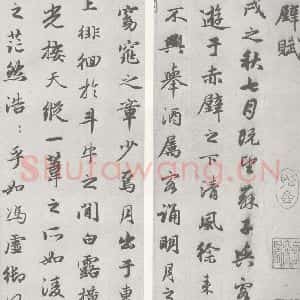 壁賦
戌之秋七月既望蘇子與客
遊于赤壁之下清風徐來
不興舉酒屬客誦明月之
窈窕之章少焉月出于東
上徘徊於斗牛之間白露橫
光接天縱一葦之所如凌
之茫然浩〻乎如馮虛御
Shufawang.CN